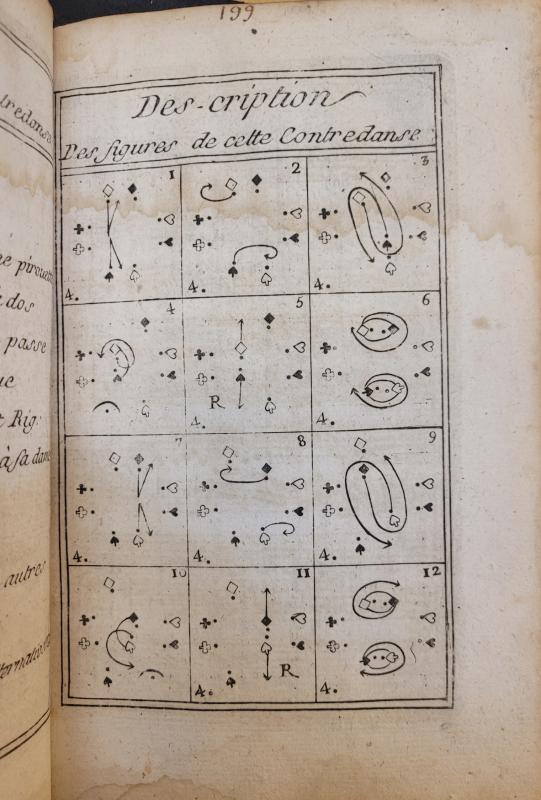 199
Des-cription
Des figures de cette Contredanse
1
2
3
4.
4.
4.
4
5
6
R
4.
4.
7
8
9
4.
4.
4.
10
11
12
R
4.
4.
tredanse
ée pirouette
dos
passe
t Rig.
à sa dan
autres